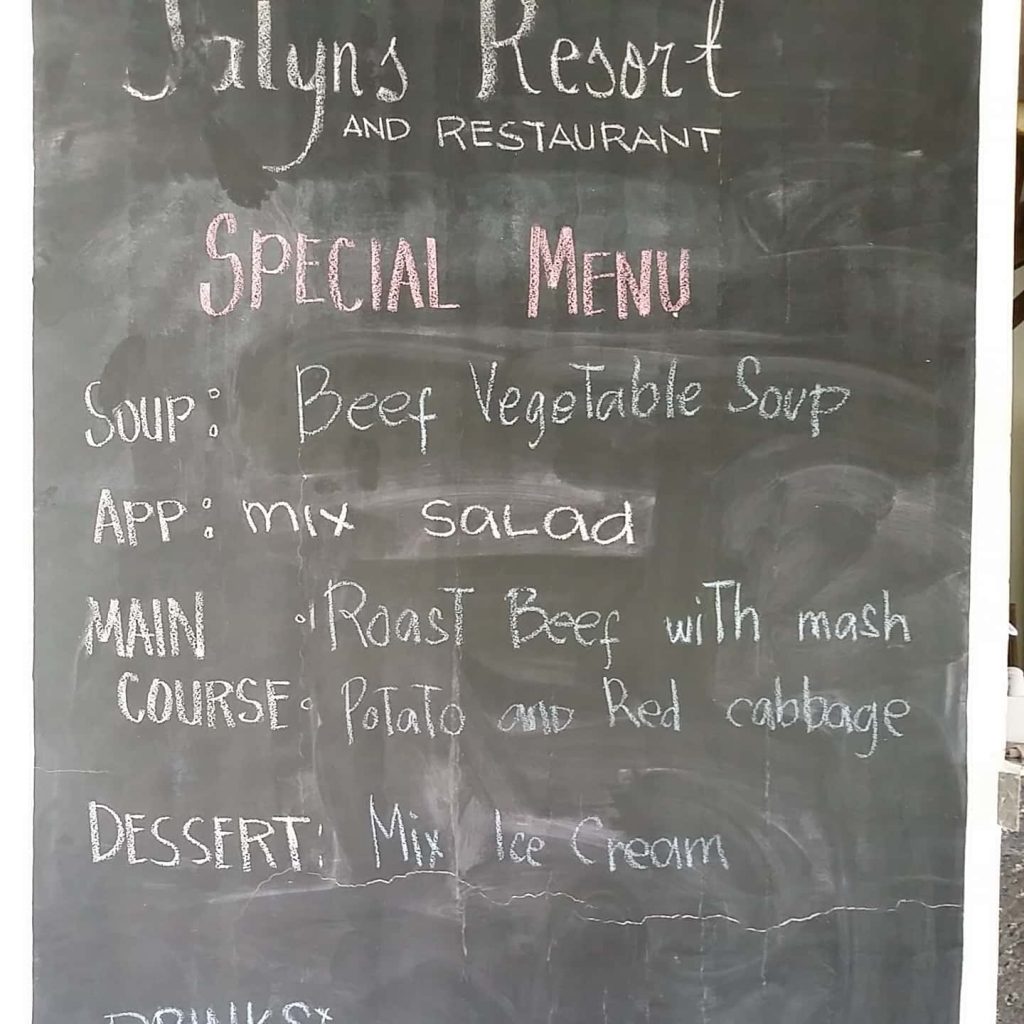 Jalyns Resort
AND RESTAURANT
SPECIAL MENU
SOUP: Beef Vegetable Soup
APP: mix salad
MAIN : Roast Beef with mash
COURSE: Potato and Red cabbage
DESSERT: Mix Ice Cream
DRINKS: